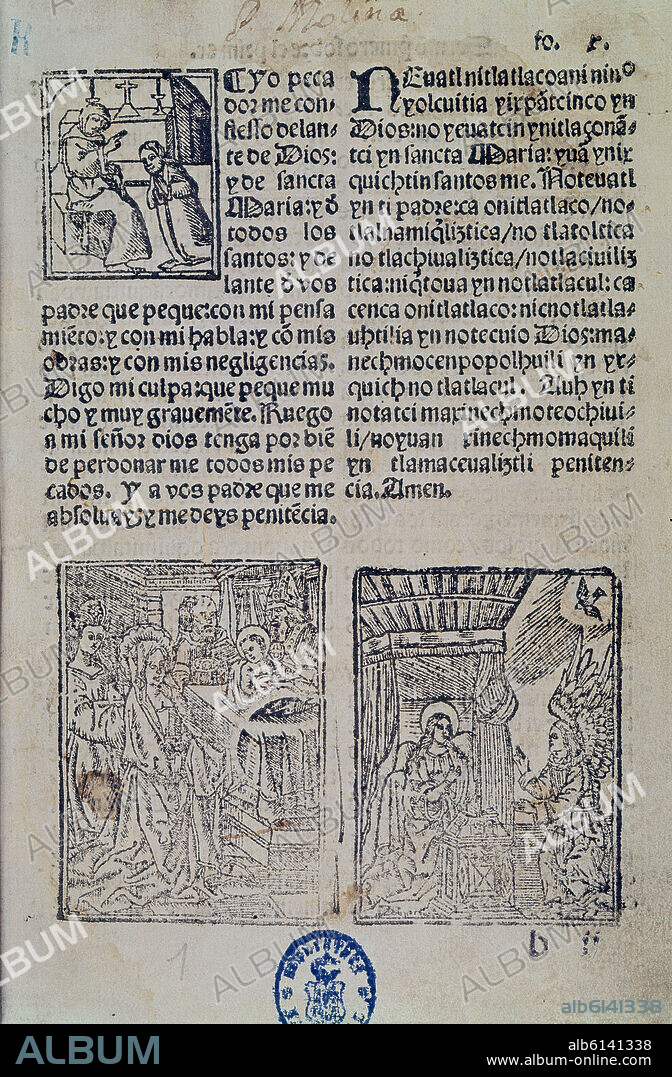 P. Molina.
fo. x.
¶Yo peca
dor me con-
fiesso delan-
te de Dios:
y de sancta
Maria: y d̄
todos los
santos: y de
lante d̄ vos
padre que peque: con mi pensa
miẽto: y con mi habla: y cõ mis
obras: y con mis negligencias.
Digo mi culpa: que peque mu
cho y muy grauemẽte. Ruego
a mi señor dios tenga por biẽ
de perdonar me todos mis pe
cados. Y a vos padre que me
absoluays y me deys penitẽcia.
NEuatl nitlatlacoani nino
yolcuitia yixpãtcinco yn
Dios: no yeuatcin ynitlaçonã-
tci yn sancta Maria: yuã ynix
quichtin santos me. No teuatl
yn ti padre: ca onitlatlaco/no-
tlalnamiq̃liztica/no tlatoltica
no tlachiualiztica/notlaciuiliz
tica: niq̃toua yn notlatlacul: ca
cenca onitlatlaco: nicnotlatla-
uhtilia yn notecuio Dios: ma-
nechmocenpopolhuili yn yx-
quich no tlatlacul. Auh yn ti
notatci maxinechmoteochiui-
li/no yuan xinechmomaquili
yn tlamaceualiztli peniten-
cia. Amen.
b ij
1
ALBUM
alb6141338
ALBUM
alb6141338
www.album-online.com